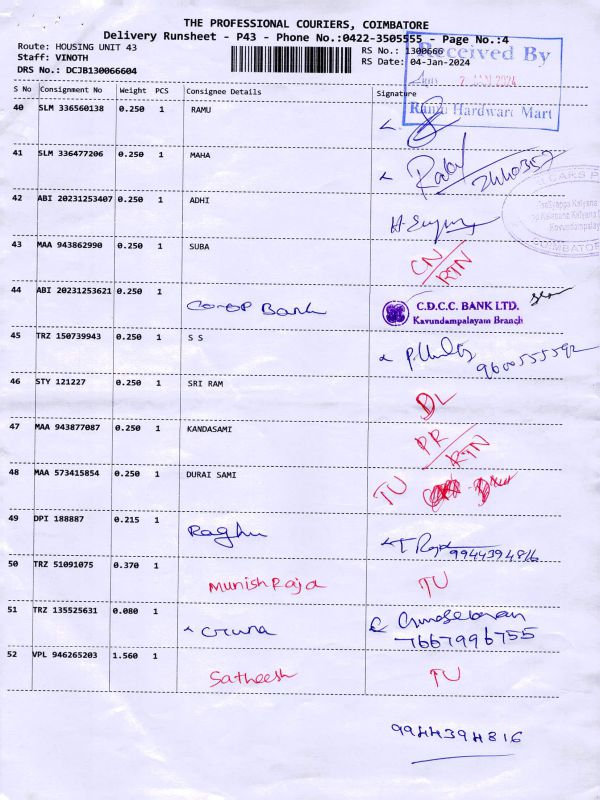 THE PROFESSIONAL COURIERS, COIMBATORE
Delivery Runsheet - P43 - Phone No.:0422-3505555 - Page No.:4
Route: HOUSING UNIT 43
RS No.: 1300666
Staff: VINOTH
RS Date: 04-Jan-2024
DRS No.: DCJB130066604
Received By
JAN 2024
Ranu Hardware Mart
S No Consignment No Weight PCS Consignee Details Signature
40 SLM 336560138 0.250 1 RAMU
41 SLM 336477206 0.250 1 MAHA
42 ABI 20231253407 0.250 1 ADHI
43 MAA 943862990 0.250 1 SUBA CN/RTN
44 ABI 20231253621 0.250 1 CO-OP Bank C.D.C.C. BANK LTD.
Kavundampalayam Branch
45 TRZ 150739943 0.250 1 S S 9600555592
46 STY 121227 0.250 1 SRI RAM DL
47 MAA 943877087 0.250 1 KANDASAMI PR/RTN
48 MAA 573415854 0.250 1 DURAI SAMI TU
49 DPI 188887 0.215 1 Raghu 9944394816
50 TRZ 51091075 0.370 1 Munish Raja TU
51 TRZ 135525631 0.080 1 7667996755
52 VPL 946265203 1.560 1 Satheesh TU
9944394816